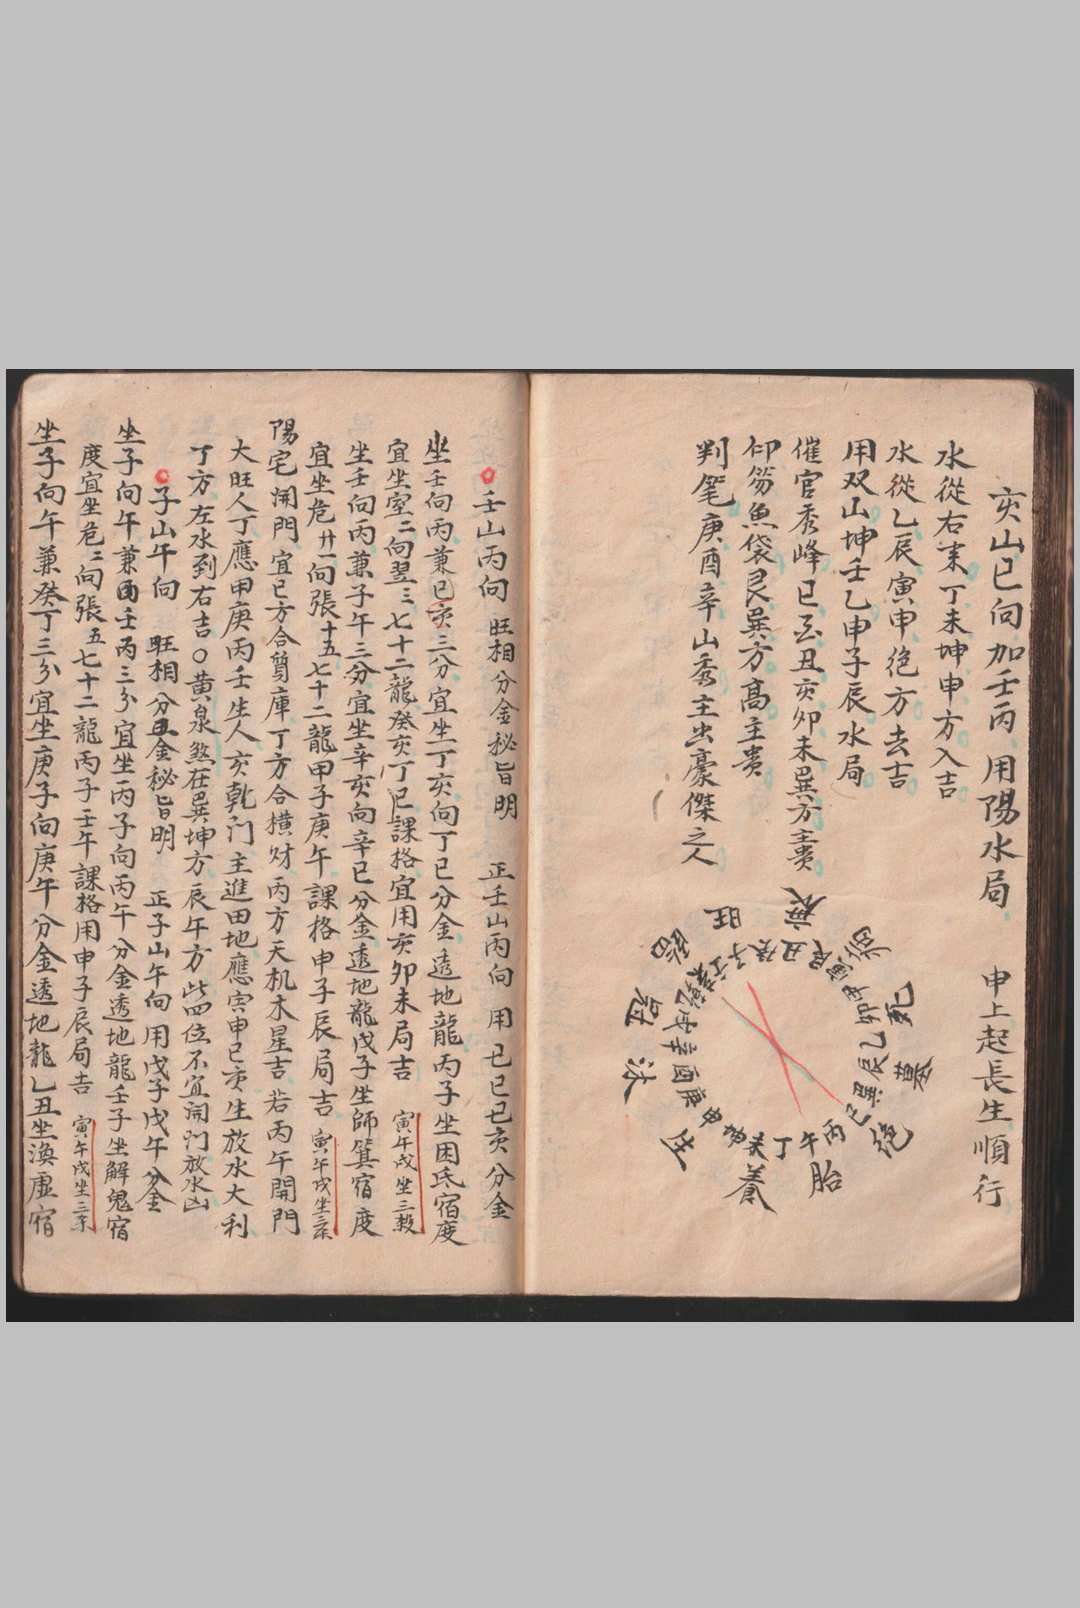 亥山巳向加壬丙 用陽水局 申上起長生順行
水從右来丁未坤申方入吉
水從乙辰寅申绝方去吉
用双山坤壬乙申子辰水局
催官秀峰巳酉丑亥卯未巽方主贵
印笏魚袋艮巽方高主贵
判笔庚酉辛山秀主出豪傑之人
生 沐 冠 官 旺 衰 病 死 墓 绝 胎 養
坤申庚酉辛戌乾亥壬子癸丑艮寅甲卯乙辰巽巳丙午丁未
壬山丙向 旺相分金秘旨明 正壬山丙向 用 己巳己亥分金
坐壬向丙兼巳亥三分宜坐丁亥向丁巳分金透地龍丙子坐困氐宿度
宜坐室二向翌三七十二龍癸亥丁巳課格宜用亥卯未局吉 寅午戍坐三殺
坐壬向丙兼子午三分宜坐辛亥向辛巳分金透地龍戊子坐師箕宿度
宜坐危廿一向張十五七十二龍甲子庚午課格申子辰局吉 寅午戍坐三杀
陽宅開門宜巳方合資庫丁方合横财丙方天机木星吉若丙午開門
大旺人丁應甲庚丙壬生人亥乾门主進田地應寅申巳亥生放水大利
丁方左水到右吉〇黄泉煞在巽坤方辰午方此四位不宜開门放水凶
子山午向 旺相分金秘旨明 正子山午向用戊子戊午分金
坐子向午兼壬丙三分宜坐丙子向丙午分金透地龍壬子坐解鬼宿
度宜坐危二向張五七十二龍丙子壬午課格用申子辰局吉 寅午戍坐三杀
坐子向午兼癸丁三分宜坐庚子向庚午分金透地龍乙丑坐渙虚宿